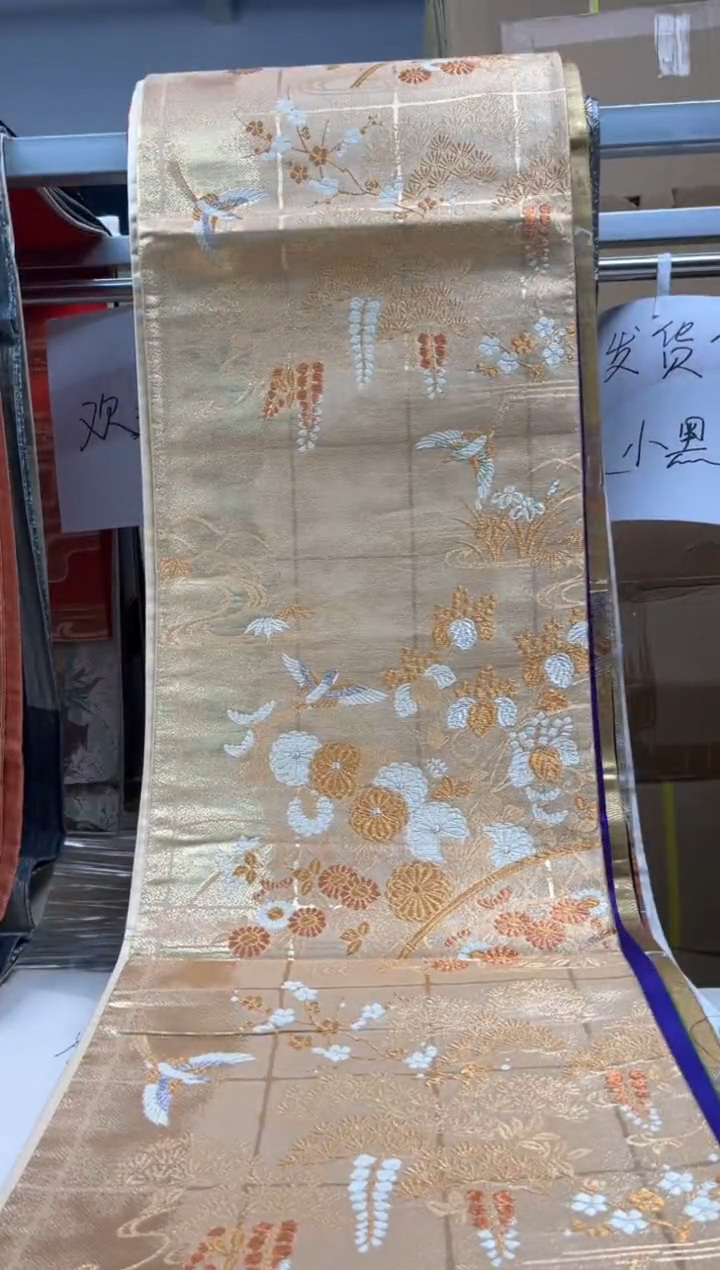 欢
发货
小黑